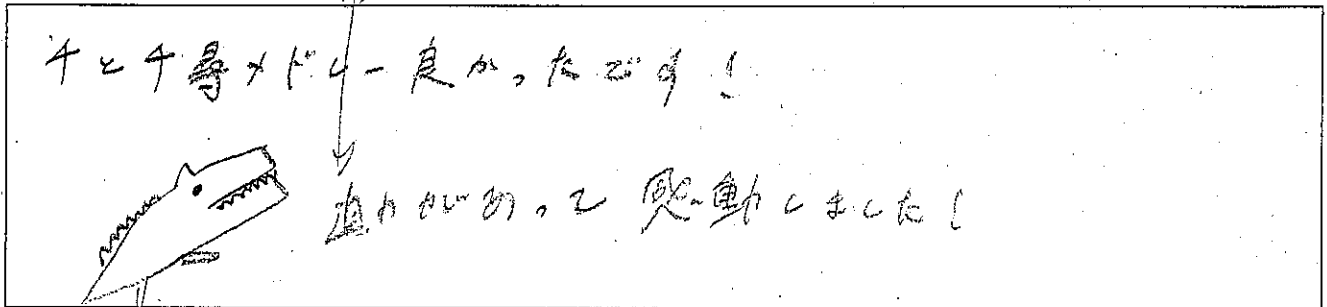 千と千尋メドレー良かったです！
迫力があって感動しました！